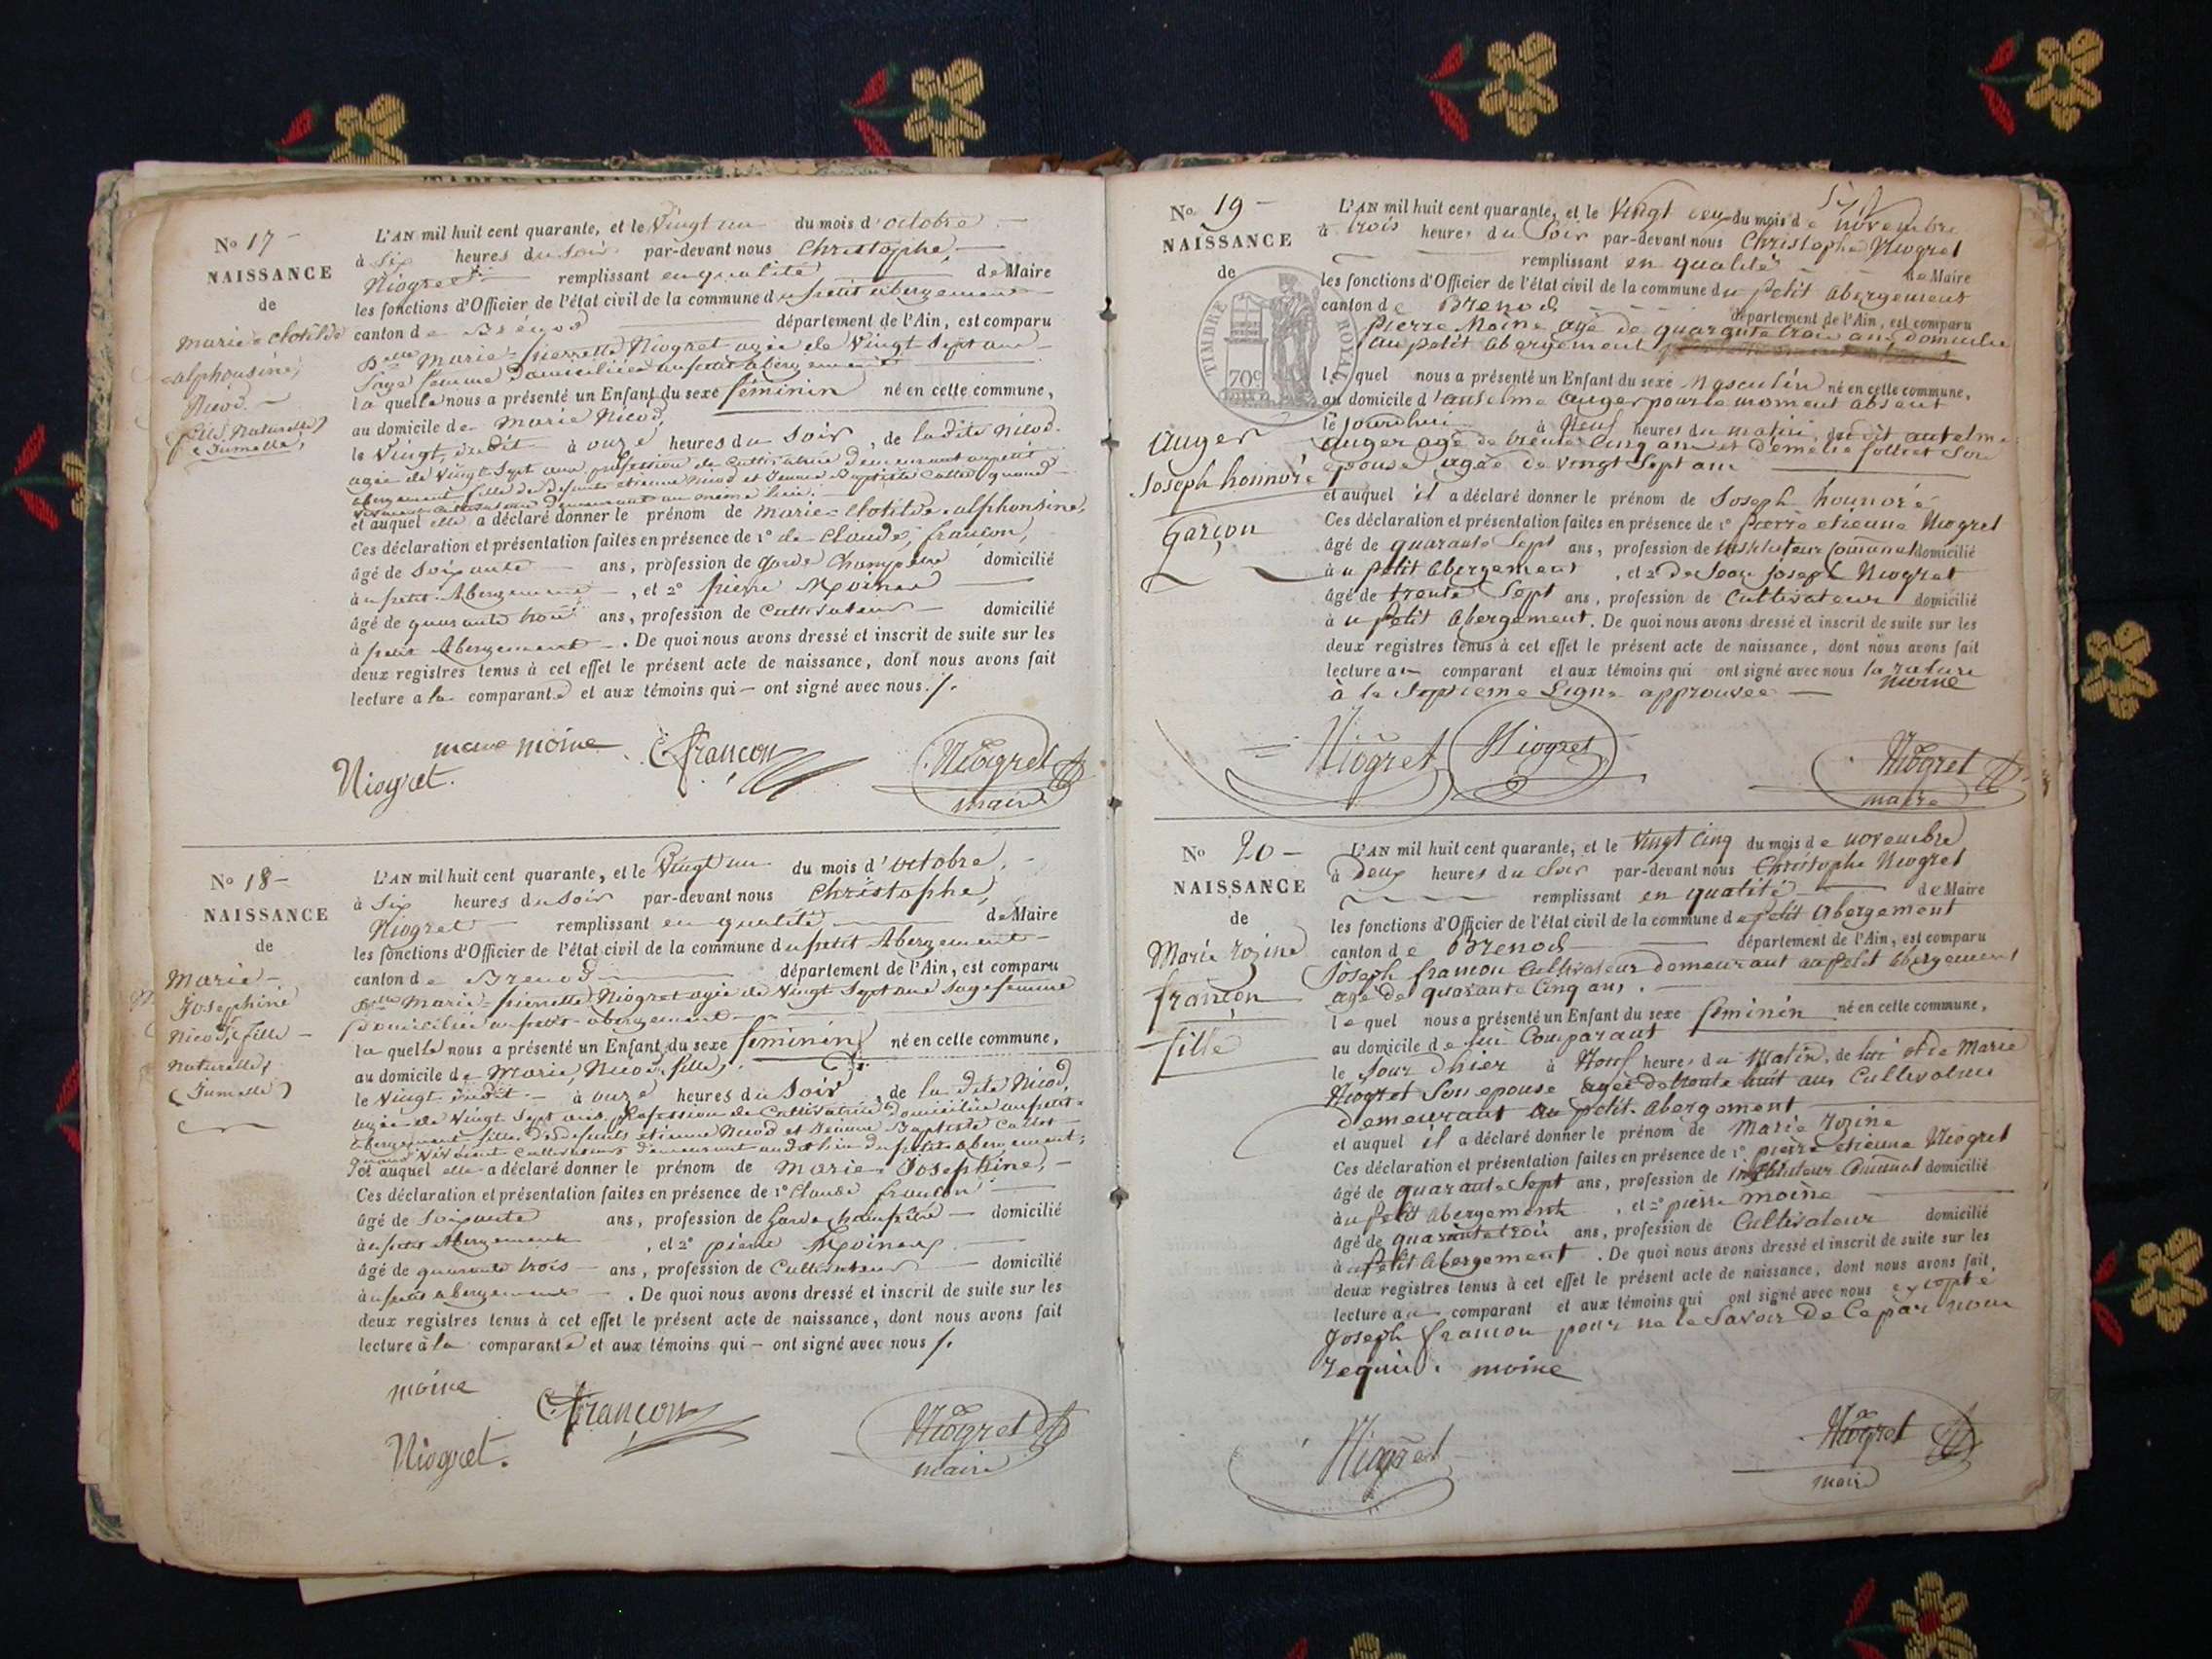 N° 17
NAISSANCE
de
Marie Clotilde
alphonsine,
Nicod.
fille Naturelle
Jumelle,
L'AN mil huit cent quarante, et le Vingt un du mois d'octobre
à Six heures du Soir par-devant nous Christophe,
Niogret remplissant en qualité de Maire
les fonctions d'Officier de l'état civil de la commune du petit abergement
canton de Brénod département de l'Ain, est comparu
Dlle Marie Pierrette Niogret agée de Vingt Sept ans
Sage femme domiciliée au petit abergement
la quelle nous a présenté un Enfant du sexe féminin né en cette commune,
au domicile de Marie Nicod,
le Vingt, dudit à onze heures du Soir, de la dite Nicod.
agée de Vingt Sept ans profession de Cultivatrice demeurant au petit
abergement fille de defunts etienne Nicod et Jeanne Baptiste Callet quand
vivaient Cultivateurs demeurant au même lieu.
et auquel elle a déclaré donner le prénom de Marie Clotilde alphonsine,
Ces déclaration et présentation faites en présence de 1° de Claude, françon,
âgé de Soixante ans, profession de Garde Champêtre domicilié
à u petit Abergement, et 2° pierre Moine
âgé de quarante trois ans, profession de Cultivateur domicilié
à petit Abergement. De quoi nous avons dressé et inscrit de suite sur les
deux registres tenus à cet effet le présent acte de naissance, dont nous avons fait
lecture a la comparante et aux témoins qui ont signé avec nous./.
moine Cfrançon
Niogret. Niogret
maire
N° 18
NAISSANCE
de
Marie
Josephine
Nicod, fille
Naturelle,
(Jumelle)
L'AN mil huit cent quarante, et le Vingt un du mois d'octobre,
à Six heures du Soir par-devant nous Christophe,
Niogret remplissant en qualité de Maire
les fonctions d'Officier de l'état civil de la commune du petit Abergement
canton de Brenod département de l'Ain, est comparu
Dlle Marie Pierrette Niogret agée de Vingt Sept ans Sage femme
domiciliée au petit abergement
la quelle nous a présenté un Enfant du sexe féminin né en cette commune,
au domicile de Marie, Nicod, fille,
le Vingt dudit à onze heures du Soir, de la dite Nicod,
agée de Vingt Sept ans, profession de Cultivatrice domiciliée au petit
abergement fille des defunts etienne Nicod et Jeanne Baptiste Callet
quand vivaient Cultivateurs demeurant audit lieu du petit abergement;
et auquel elle a déclaré donner le prénom de Marie Josephine,
Ces déclaration et présentation faites en présence de 1° Claude françon
âgé de Soixante ans, profession de Garde Champêtre domicilié
à u petit Abergement, et 2° pierre Moine
âgé de quarante trois ans, profession de Cultivateur domicilié
à u petit abergement. De quoi nous avons dressé et inscrit de suite sur les
deux registres tenus à cet effet le présent acte de naissance, dont nous avons fait
lecture à la comparante et aux témoins qui ont signé avec nous /.
moine
Cfrançon
Niogret. Niogret
maire
N° 19
NAISSANCE
de
TIMBRE ROYAL
70c
Auger
Joseph honnoré
Garçon
L'AN mil huit cent quarante, et le Vingt deux du mois de novembre
à trois heures du Soir par-devant nous Christophe Niogret
remplissant en qualité de Maire
les fonctions d'Officier de l'état civil de la commune du petit abergement
canton de Brenod département de l'Ain, est comparu
pierre Moine agé de quarante trois ans domicilié
au petit abergement
lequel nous a présenté un Enfant du sexe Masculin né en cette commune,
au domicile d'anselme auger pour le moment absent
le jourdhui à Neuf heures du matin, du dit antelme
auger agé de trente cinq ans et d'émelie folliet Son
epouse agée de vingt Sept ans
et auquel il a déclaré donner le prénom de Joseph honnoré
Ces déclaration et présentation faites en présence de 1° pierre etienne Niogret
âgé de quarante Sept ans, profession de instituteur communal domicilié
à u petit abergement, et 2° de Jean Joseph Niogret
âgé de trente Sept ans, profession de Cultivateur domicilié
à u petit Abergement. De quoi nous avons dressé et inscrit de suite sur les
deux registres tenus à cet effet le présent acte de naissance, dont nous avons fait
lecture au comparant et aux témoins qui ont signé avec nous la rature
à la Septieme Ligne approuvée moine
Niogret Niogret Niogret
maire
N° 20
NAISSANCE
de
Marie rozine
françon
fille
L'AN mil huit cent quarante, et le Vingt Cinq du mois de novembre
à Deux heures du Soir par-devant nous Christophe Niogret
remplissant en qualité de Maire
les fonctions d'Officier de l'état civil de la commune de petit abergement
canton de Brenod département de l'Ain, est comparu
Joseph françon Cultivateur demeurant au petit abergement
agé de quarante Cinq ans.
lequel nous a présenté un Enfant du sexe féminin né en cette commune,
au domicile de lui Comparant
le Jour dhier à Neuf heures du Matin, de lui et de Marie
Niogret Son epouse agée de trente huit ans Cultivatrice
demeurant au petit abergement
et auquel il a déclaré donner le prénom de Marie rozine
Ces déclaration et présentation faites en présence de 1° pierre etienne Niogret
âgé de quarante Sept ans, profession de instituteur Communal domicilié
à u petit abergement, et 2° pierre moine
âgé de quarante trois ans, profession de Cultivateur domicilié
à u petit Abergement. De quoi nous avons dressé et inscrit de suite sur les
deux registres tenus à cet effet le présent acte de naissance, dont nous avons fait,
lecture au comparant et aux témoins qui ont signé avec nous excepté
Joseph francon pour ne le Savoir De Ce par nous
requis. moine
Niogret Niogret
maire